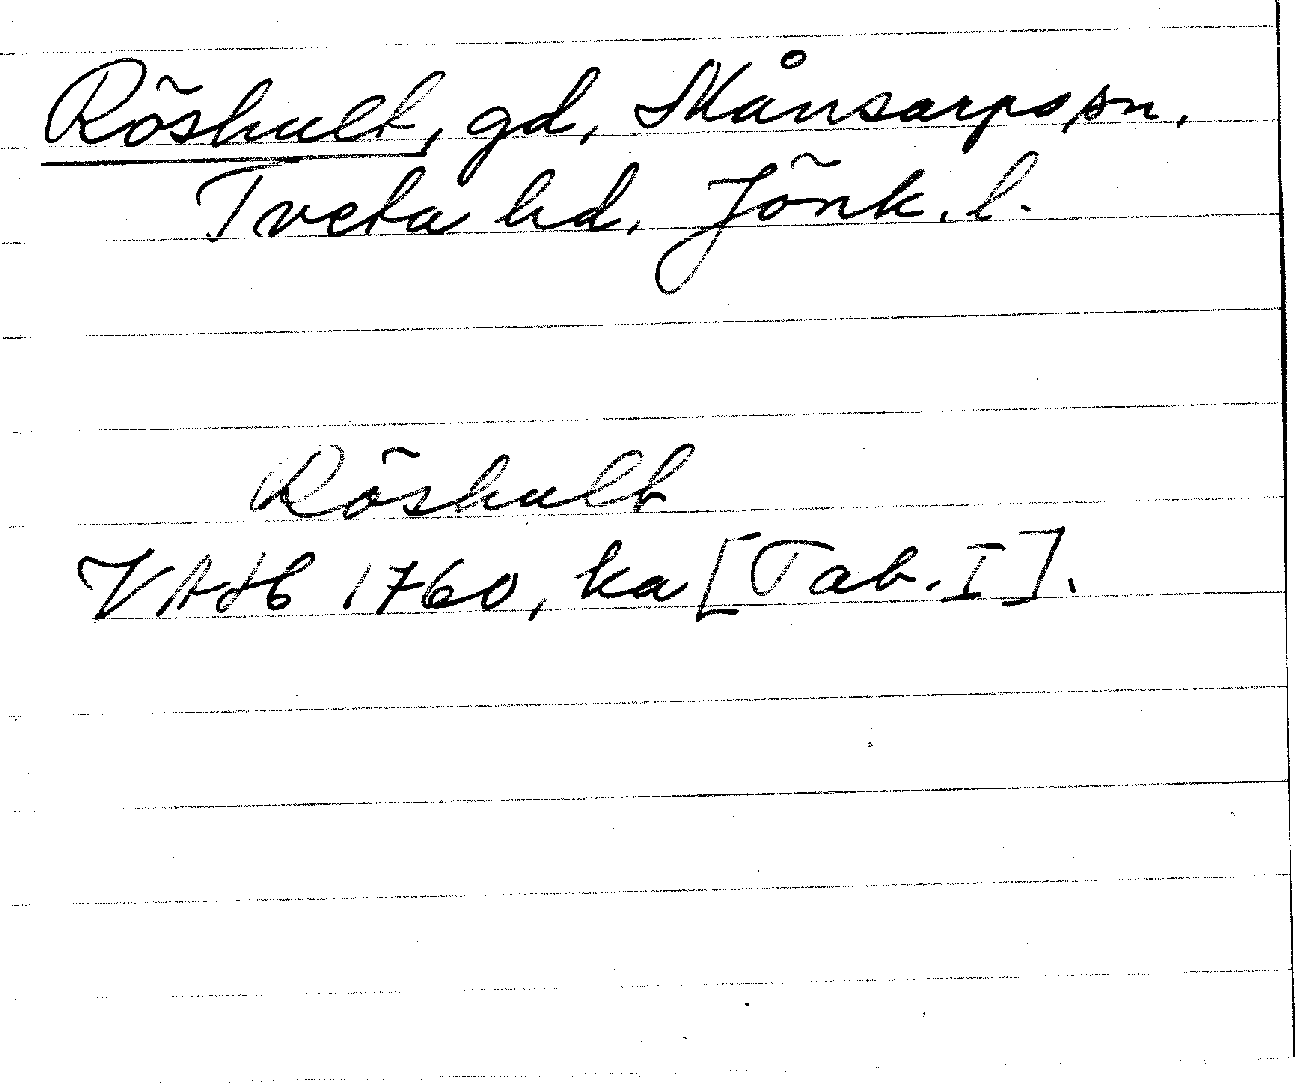 Röshult, gd, Månsarps sn,
Tveta hd, Jönk. l.
Röshult
VAH 1760, ka [Tab. I].